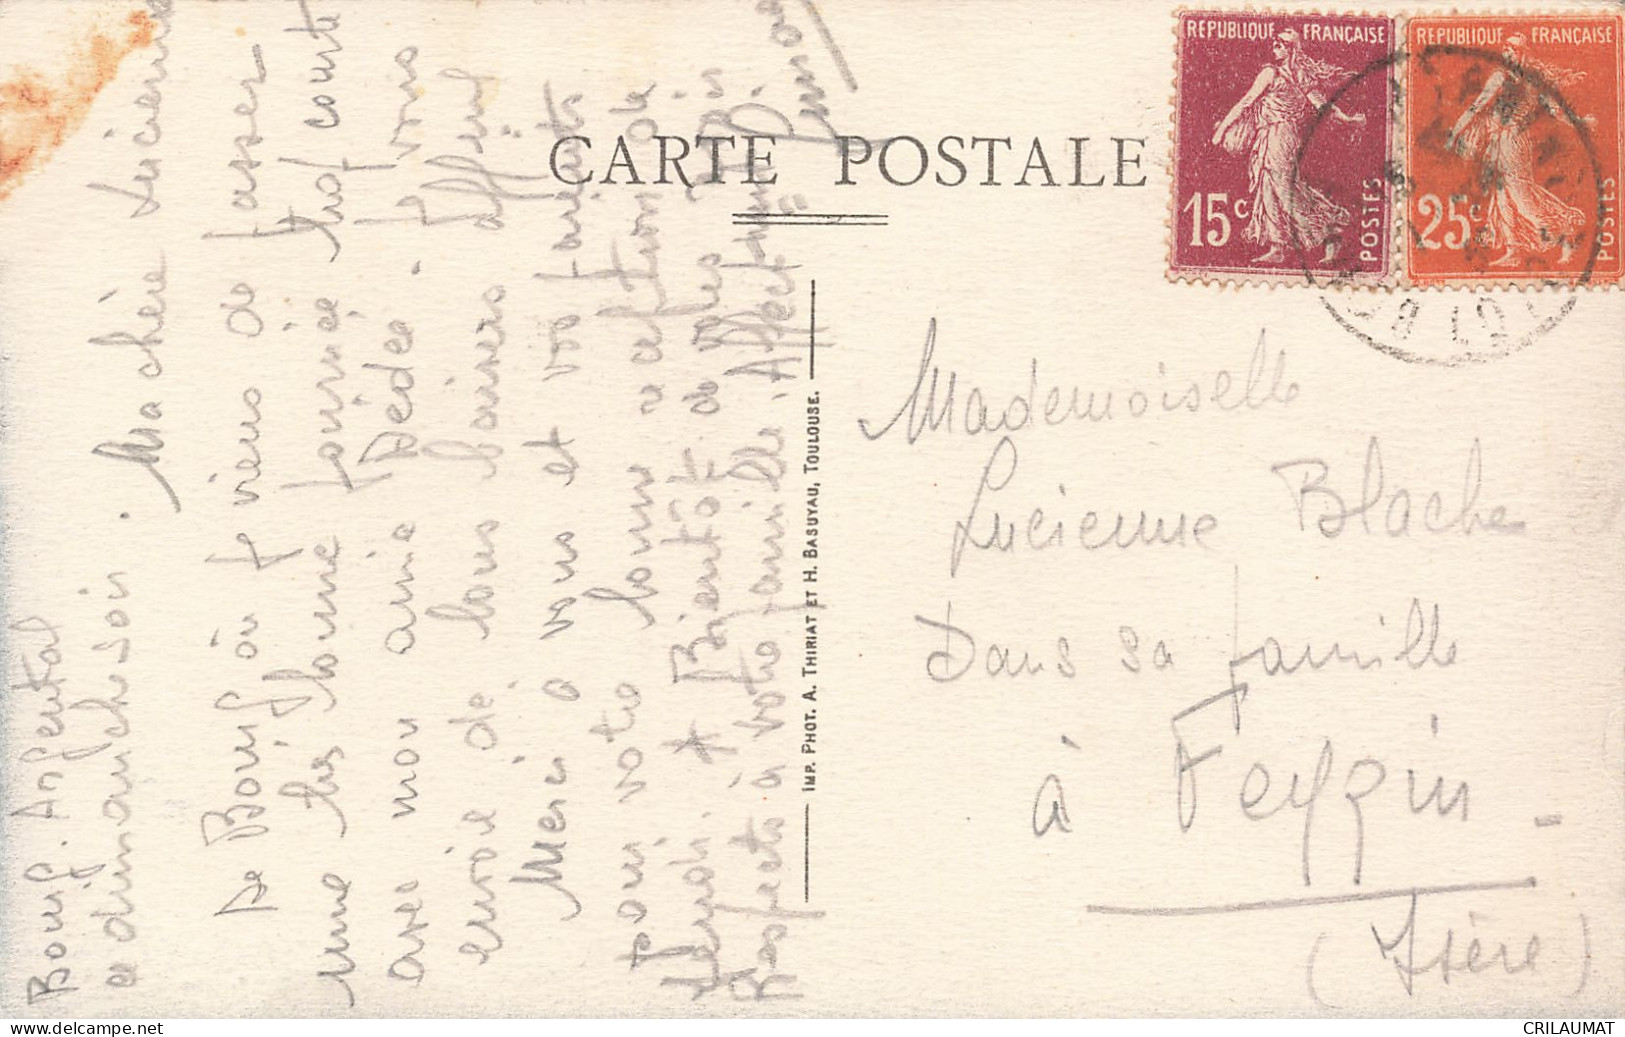 Bourg. Argental
ce dimanche soir.
Ma chère Lucienne
De Bourg où je viens de passer
une très bonne journée trop courte
avec mon amie Dédée. Je vous
envoie de bons baisers
Merci à vous et vos parents
pour votre bonne réception de
Bientôt de vous
Respects à votre famille. Affectueux
CARTE POSTALE
IMP. PHOT. A. THIRIAT ET H. BASUYAU, TOULOUSE.
REPUBLIQUE FRANÇAISE
15c
POSTES
REPUBLIQUE FRANÇAISE
25c
POSTES
Mademoiselle
Lucienne Blache
Dans sa famille
à Feyzin -
(Isère)
CRILAUMAT